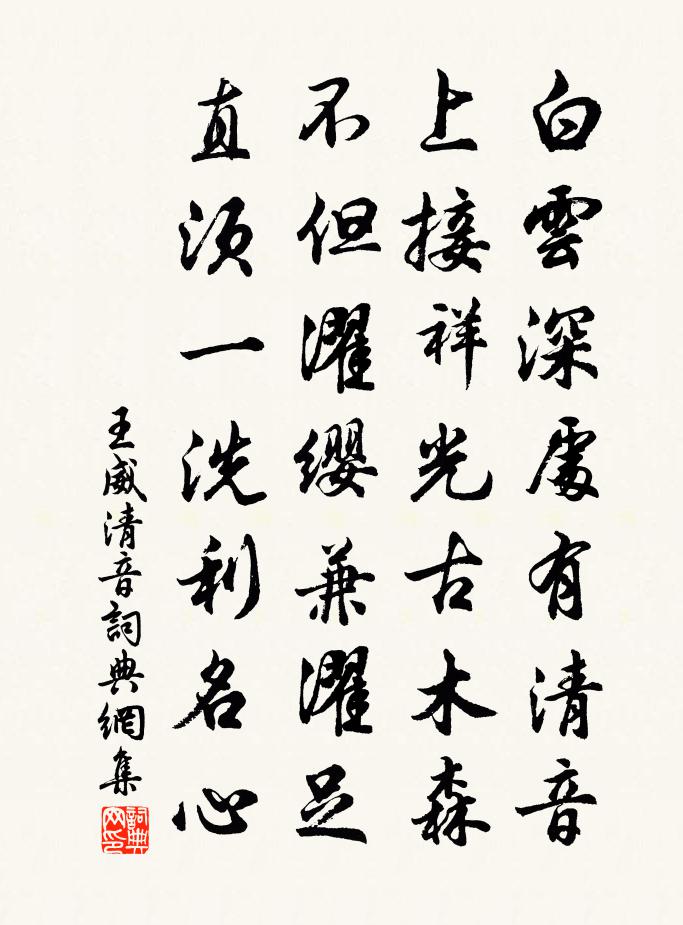 白雲深處有清音
上接祥光古木森
不但濯纓兼濯足
直須一洗利名心
王威清音詞典網集
詞典网印